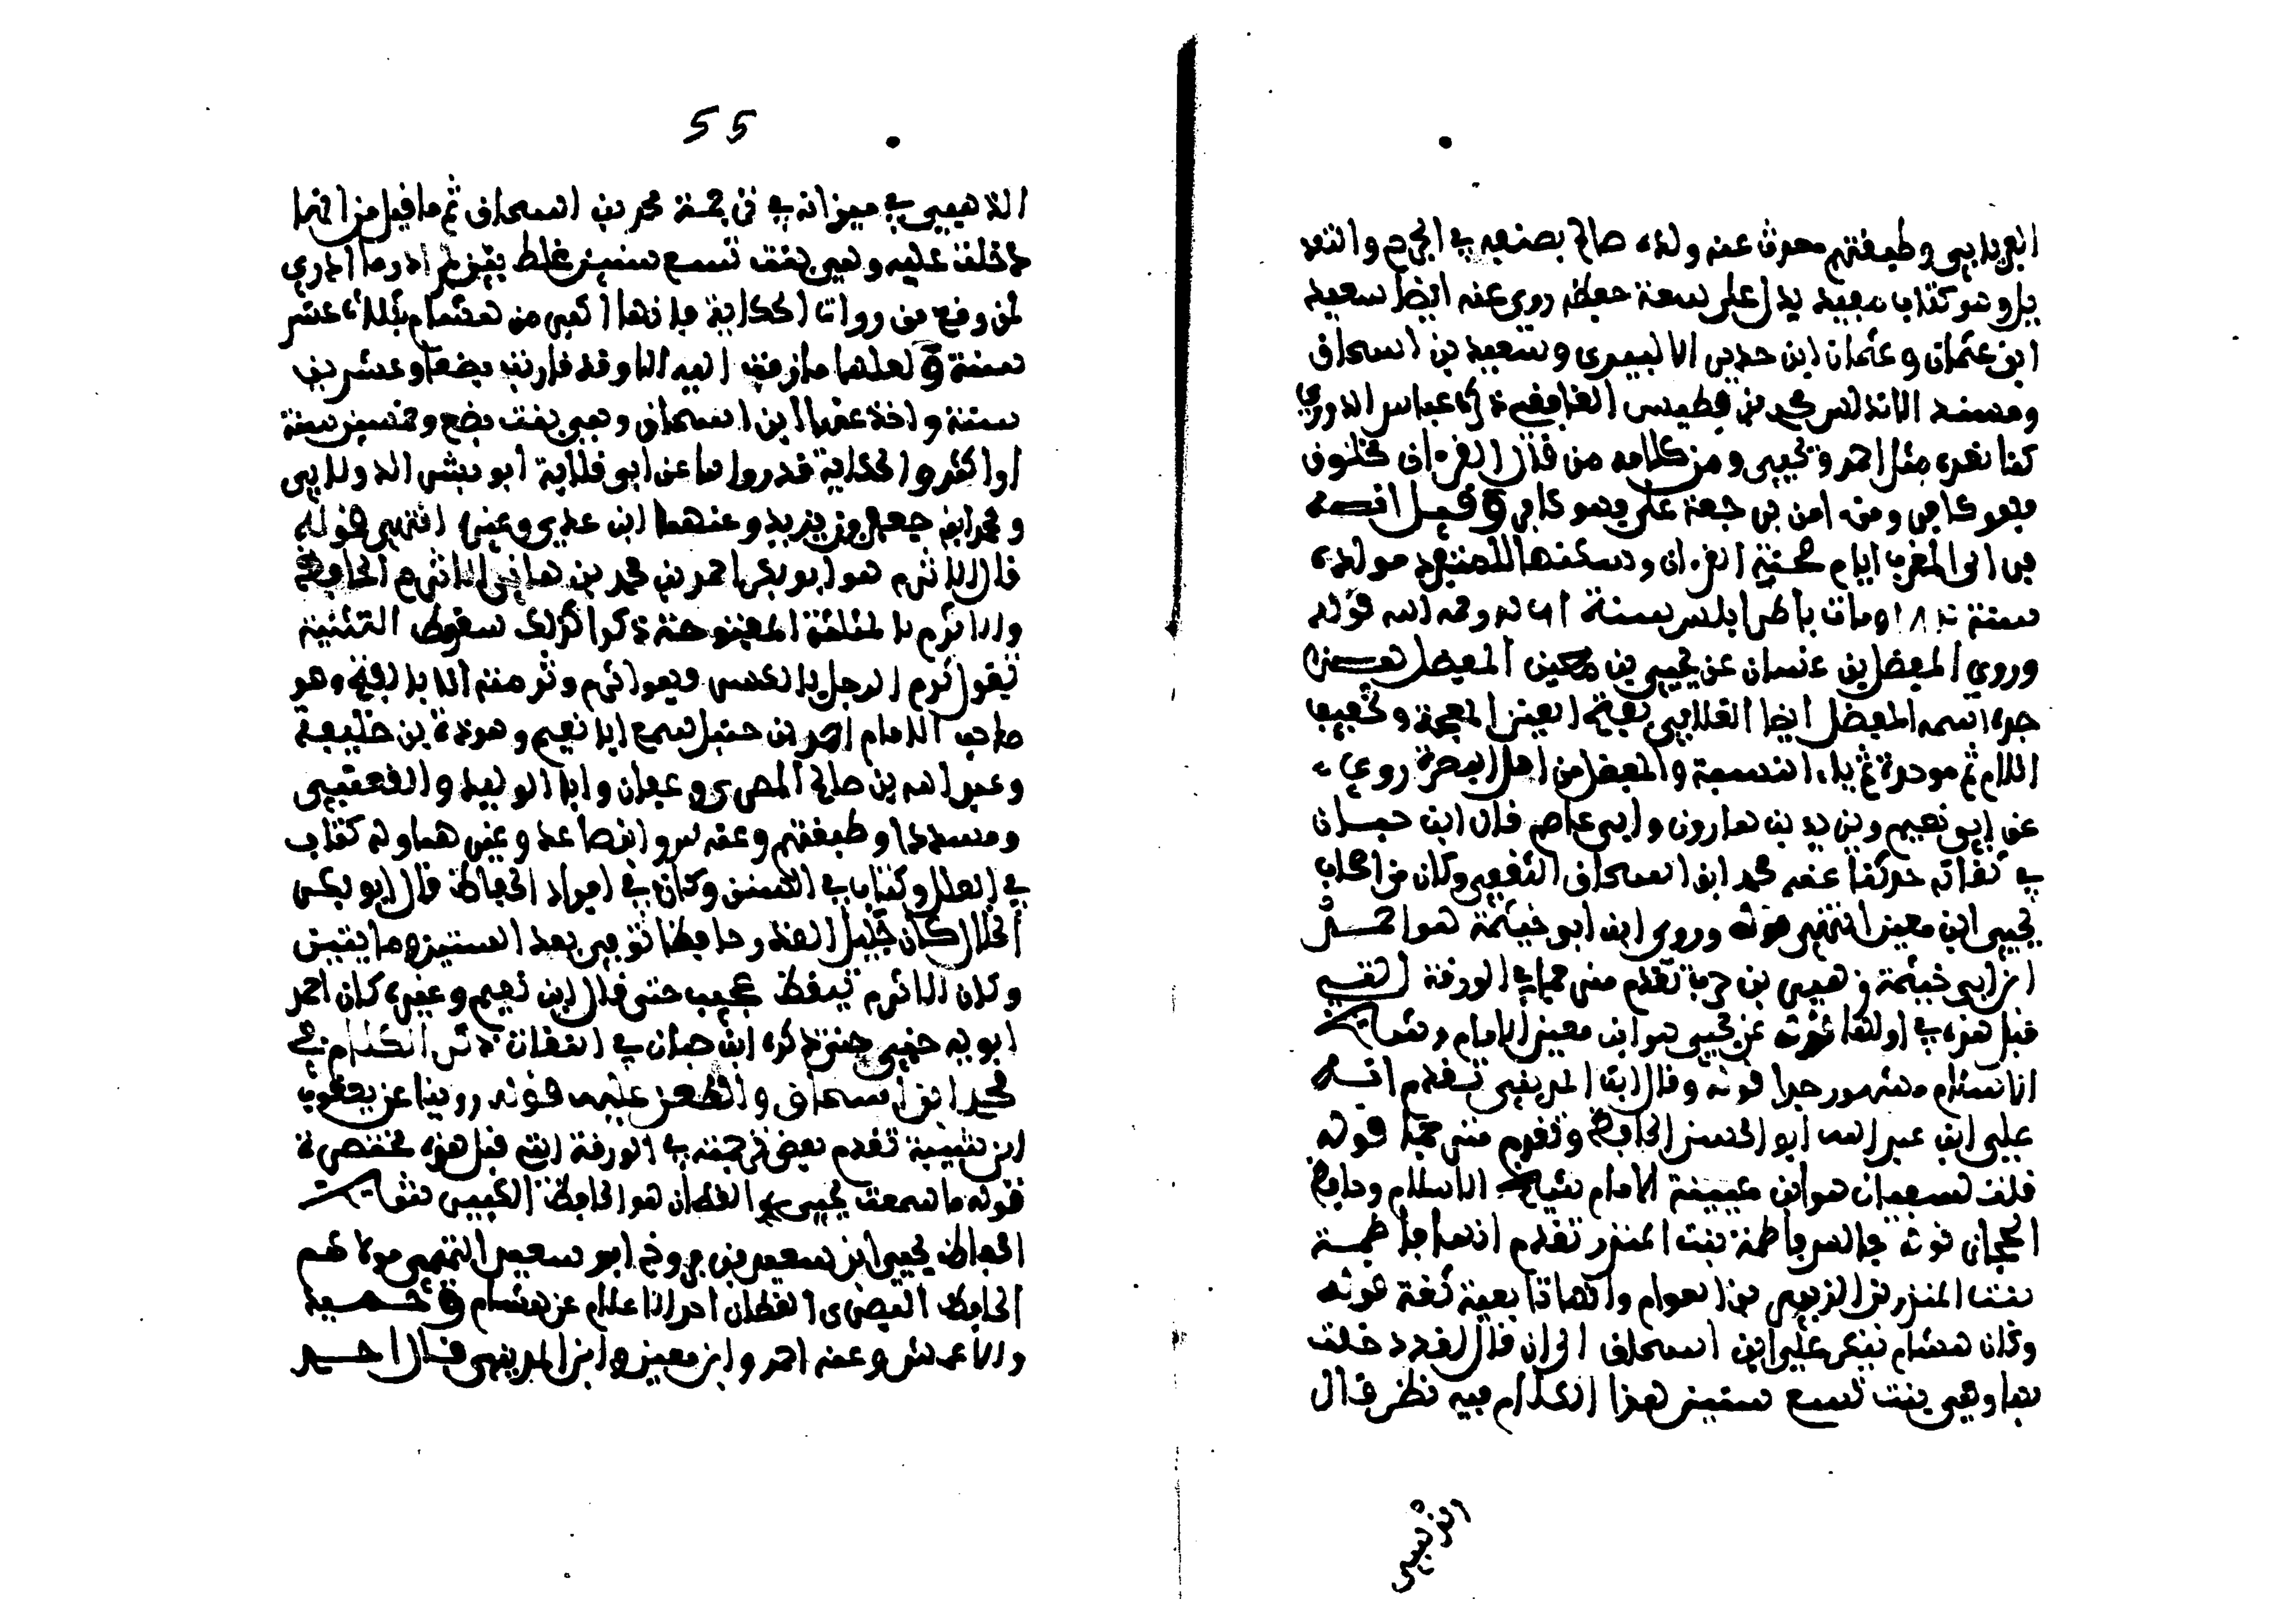 الفريابي وطبقتهم حدث عنه ولده صالح بصنفه في الجرح والتعد
يل وهو كتاب مفيد يدل على سعة حفظه روى عنه ايضا سعيد
ابن عثمان وعثمان ابن حديد الالبيري وسعيد بن اسحاق
ومسند الاندلس محمد بن فطيس الغافقي ذكره عباس الدوري
كنا نعده مثل احمد ويحيى ومن كلامه من قال القرءان مخلوق
فهو كافر ومن امن برجعة علي فهو كافر وقيل انه
فر الى المغرب ايام محنة القرءان وسكنها للتفرد مولده
سنة ١٨٢ ومات بأطرابلس سنة ٢٦١ رحمه الله قوله
وروى المفضل بن غسان عن يحيى بن معين المفضل
جده اسمه المفضل ايضا الغلابي بفتح الغين المعجمة وتخفيف
اللام ثم موحدة ثم ياء النسبة والمفضل من اهل البصرة روى
عن ابي نعيم ويزيد بن هارون وابي عاصم قال ابن حبان
في ثقاته حدثنا عنه محمد ابن اسحاق الثقفي وكان من اصحاب
يحيى ابن معين انتهى قوله وروى ابن ابو خيثمة هو احمد
ابن ابي خيثمة زهير بن حرب تقدم مترجما في الورقة التي
قبل هذه في اولها قوله عن يحيى هو ابن معين الامام
الاسلام مشهور جدا قوله وقال ابن المديني تقدم انه
علي ابن عبد الله ابو الحسن الحافظ وتقدم مترجما قوله
قلت لسفيان هو ابن عيينة الامام شيخ الاسلام وحافظ
الحجاز قوله جالس فاطمة بنت المنذر تقدم انها فاطمة
بنت المنذر بن الزبير بن العوام وانها تابعية ثقة قوله
وكان هشام ينكر على ابن اسحاق الى ان قال لقد دخلت
بها وهي بنت تسع سنين هذا الكلام فيه نظر قال
الذهبي
55
الذهبي في ميزانه في ترجمة محمد بن اسحاق ثم ما قيل من انها
دخلت عليه وهي بنت تسع سنين غلط بين ادري
ممن وقع من رواة الحكاية فانها اكبر من هشام بثلاث عشر
سنة ولعلها ما زفت اليه الا وقد قاربت بضعا وعشرين
سنة واخذ عنها ابن اسحاق وهي بنت بضع وخمسين سنة
او اكثر والحكاية قد رواها عن ابي قلابة ابو بشر الدولابي
ومحمد ابن جعفر بن يزيد وعنهما ابن عدي وغيره انتهى قوله
قال الاثرم هو ابو بكر احمد بن محمد بن هاني الاثرم الحافظ
والاثرم بالمثلثة المفتوحة ذكر الكل سقوط الثنية
تقول ثرم الرجل بالكسر فهو اثرم وثرمته انا بالفتح وهو
صاحب الامام احمد بن حنبل سمع ابا نعيم وهوذة بن خليفة
وعبد الله بن صالح المصري وعفان وابا الوليد والقعنبي
ومسددا وطبقتهم وعنه س وابن صاعد وغيرهما وله كتاب
في العلل وكتاب في السنن وكان في افراد الحفاظ قال ابو بكر
الخلال كان جليل القدر حافظا توفي بعد الستين ومايتين
وكان الاثرم تيقظ عجيب حتى قال ابن نعيم وغيره كان احد
ابويه جني ذكره ابن حبان في الثقات ذكر الكلام في
محمد ابن اسحاق والطعن عليه قوله روينا عن يعقوب
ابن شيبة تقدم بعض ترجمته في الورقة التي قبل هذه مختصرة
قوله ما سمعت يحيى القطان هو الحافظ الكبير
الحفاظ يحيى ابن سعيد بن فروخ ابو سعيد التميمي مولاهم
الحافظ البصري القطان احد الاعلام عن هشام وحميد
والاعمش وعنه احمد وابن معين وابن المديني قال احمد